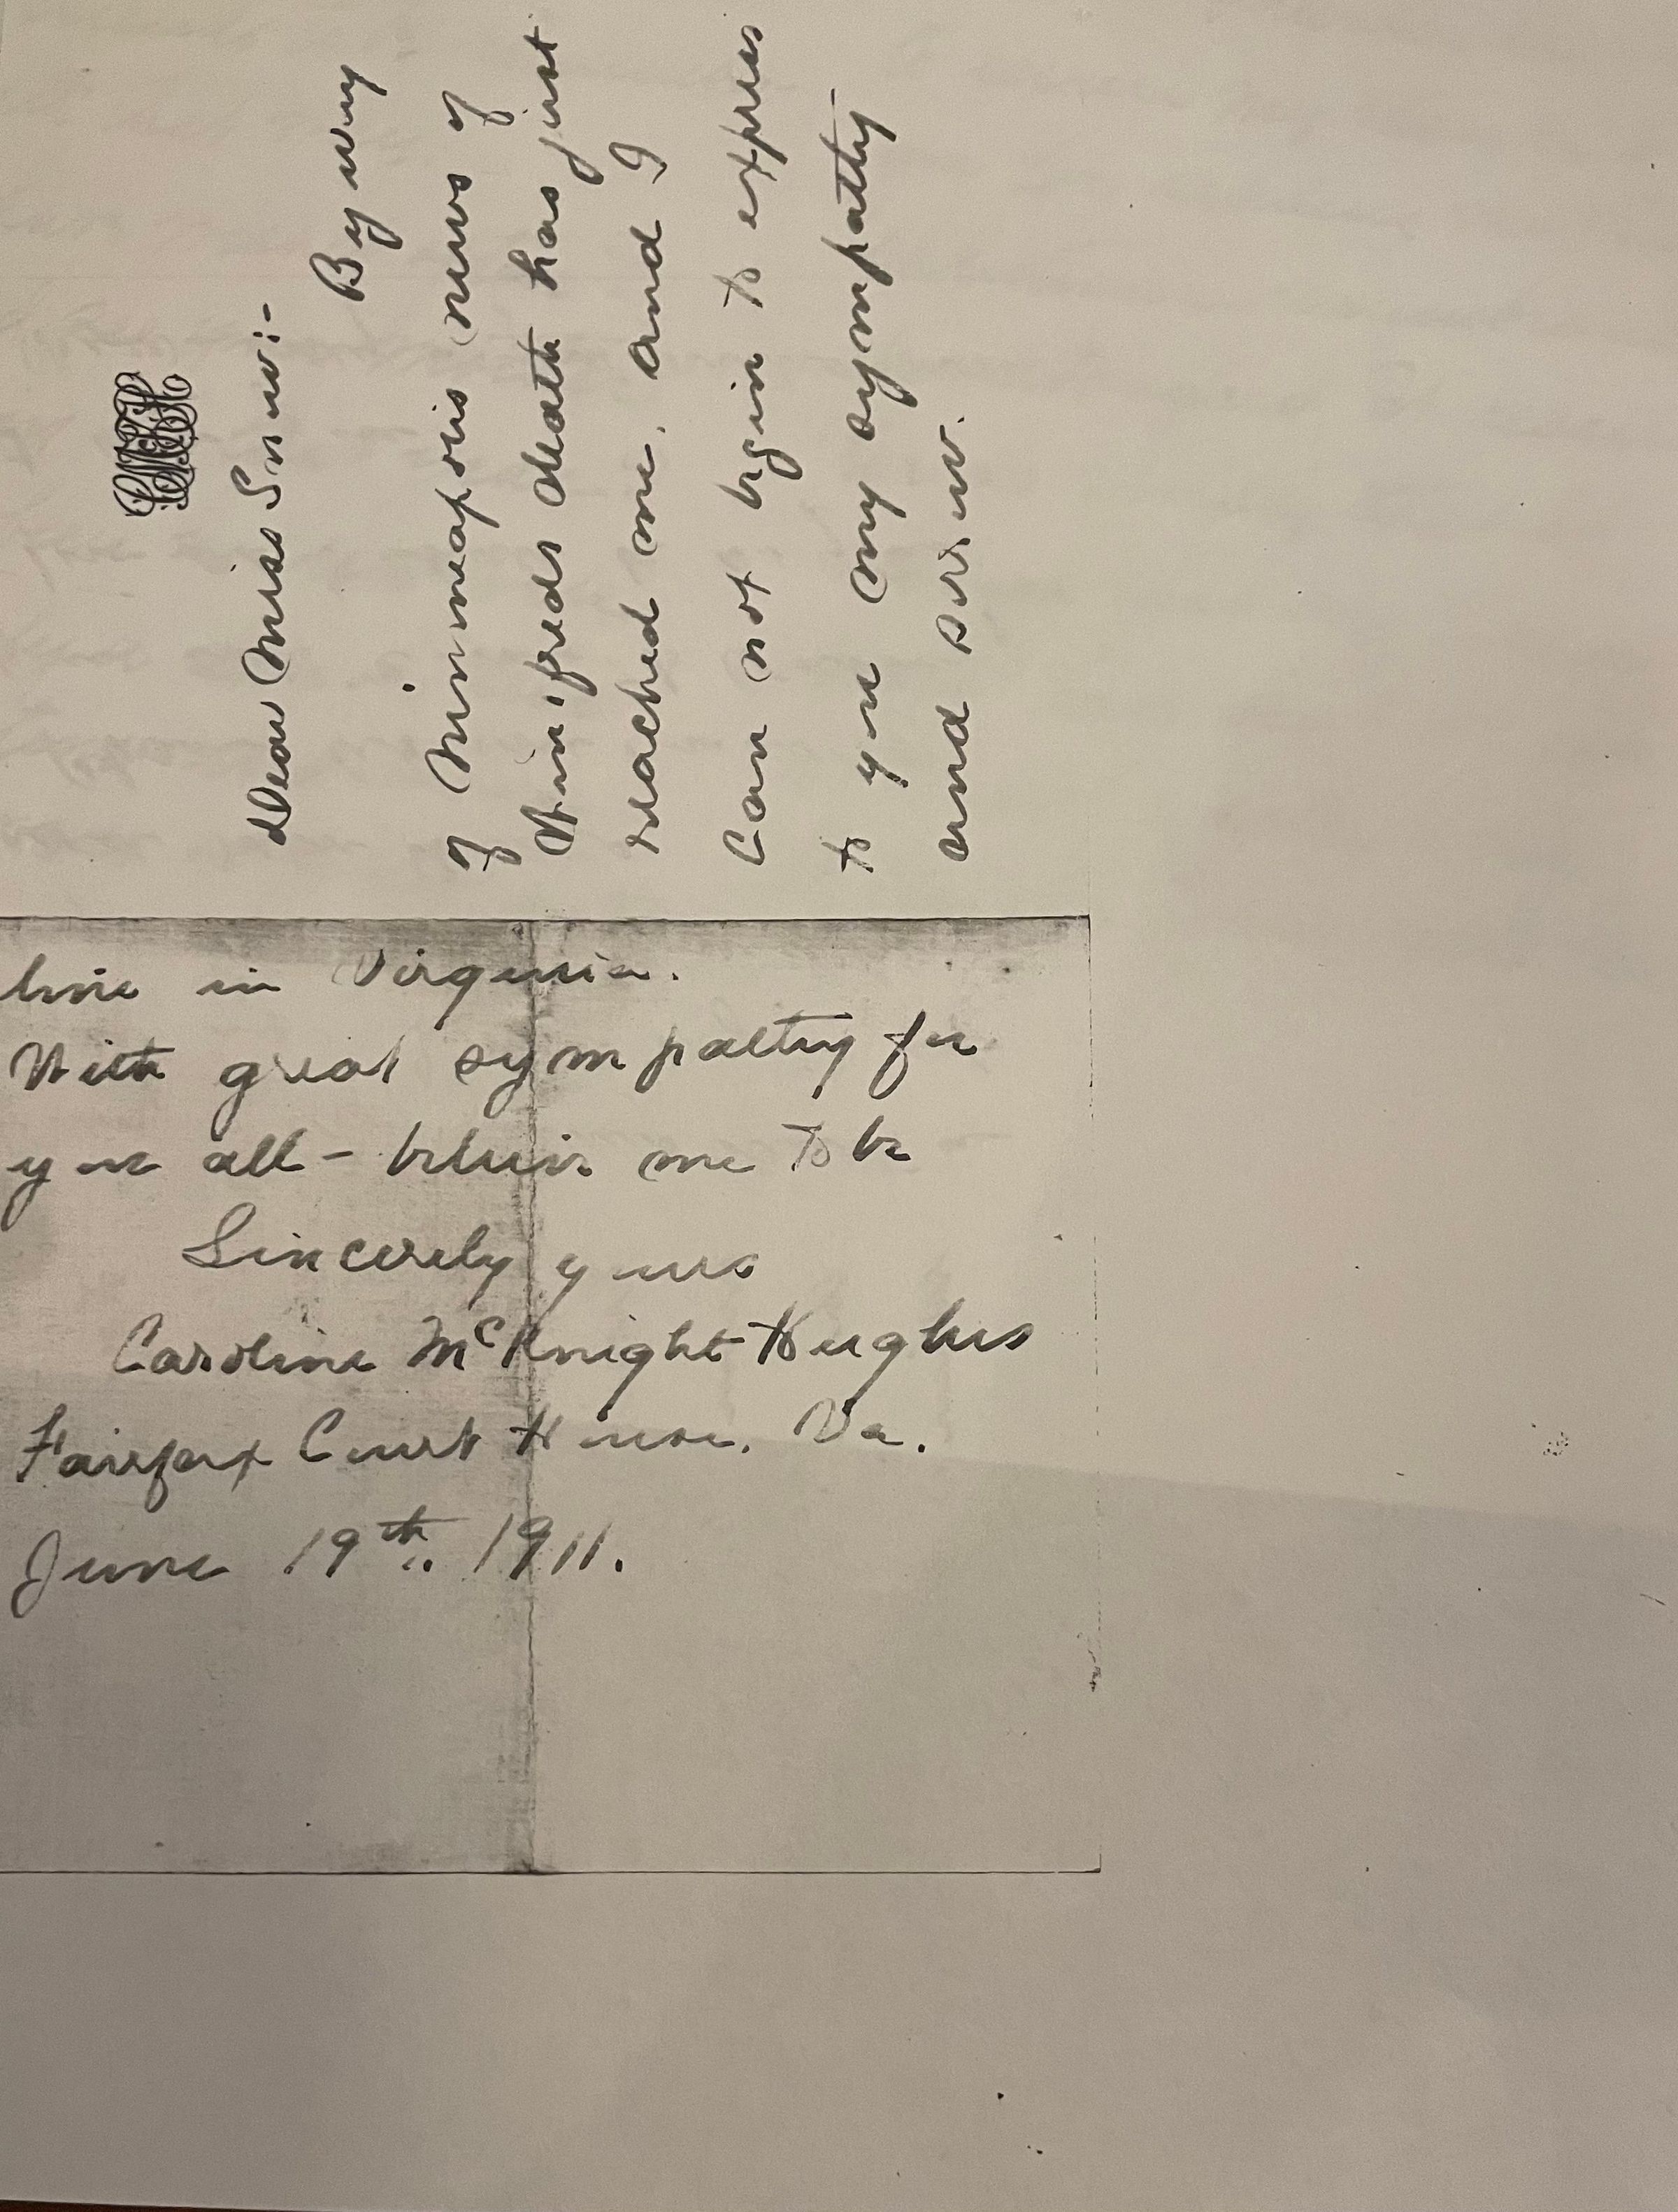 Dear Miss Snow:-
By way
of Minneapolis news of
Winifreds death has just
reached me, and I
can not begin to express
to you my sympathy
and sorrow.
line in Virginia.
With great sympathy for
you all - believe me to be
Sincerely yours
Caroline McKnight Hughes
Fairfax Court House, Va.
June 19th. 1911.